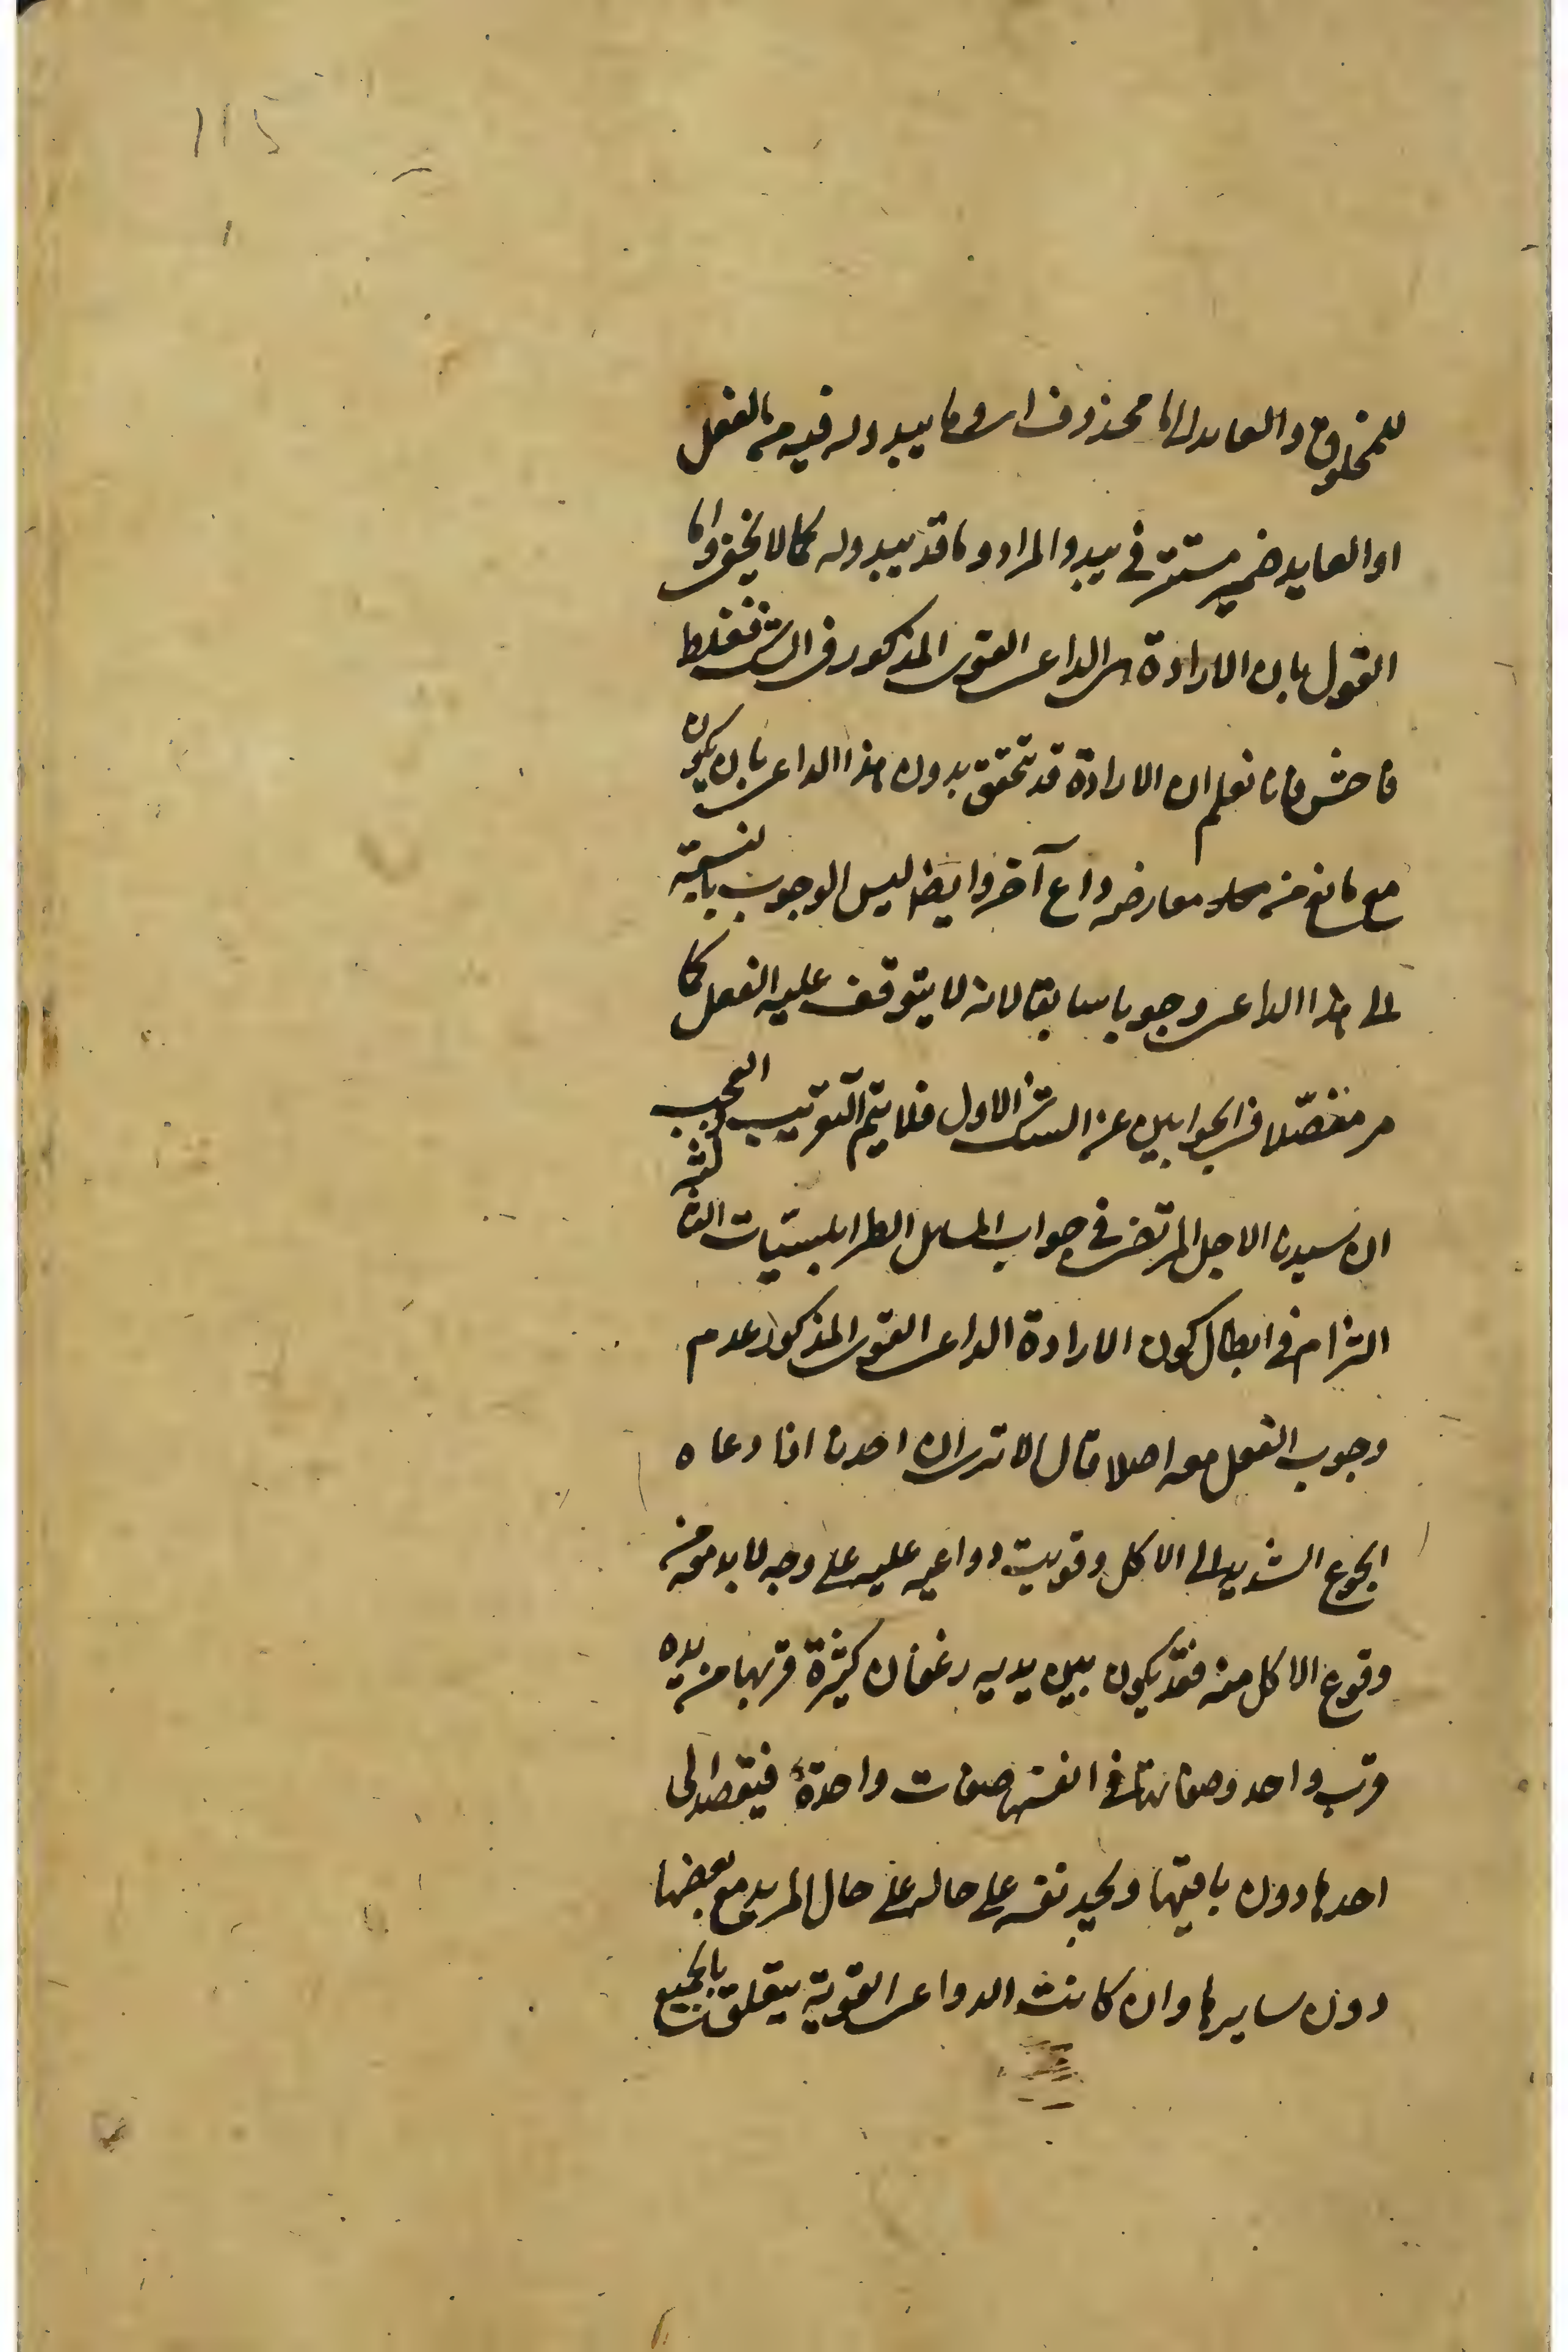 115
للمخلوق والعايد الى ما محذوف اى وما يبدو له فيه من الفعل
او العايد ضمير مستتر في يبدو المراد وما قد يبدو له كما لا يخفى واما
القول بان الارادة هى الداعى القوى المذكور فى الش فغلط
فاحش فانا نعلم ان الارادة قد تتحقق بدون هذا الداعى بان يكون
مع مانع من معارضه داع آخر وايضا ليس الوجوب بالنسبة
الى هذا الداعى وجوبا سابقا لانه لا يتوقف عليه الفعل كما
مر مفصّلا فى الجوابين عن الش الاول فلا يتم التقريب والعجب
ان سيدنا الاجل المرتضى في جواب المسائل الطرابلسيّات الثالثة
التزام في ابطال كون الارادة الداعى القوى المذكور عدم
وجوب الفعل معه اصلا قال الا ترى ان احدنا اذا دعاه
الجوع الشديد الى الاكل وقويت دواعيه عليه على وجه لا بد معه من
وقوع الاكل منه فقد يكون بين يديه رغفان كثيرة قربها من يده
قرب واحد وصفاتها في انفسها صفات واحدة فيقصد الى
احدها دون باقيها ويجد نفسه على حاله على حال المريد مع بعضها
دون سايرها وان كانت الدواعى القوية يتعلق بالجميع